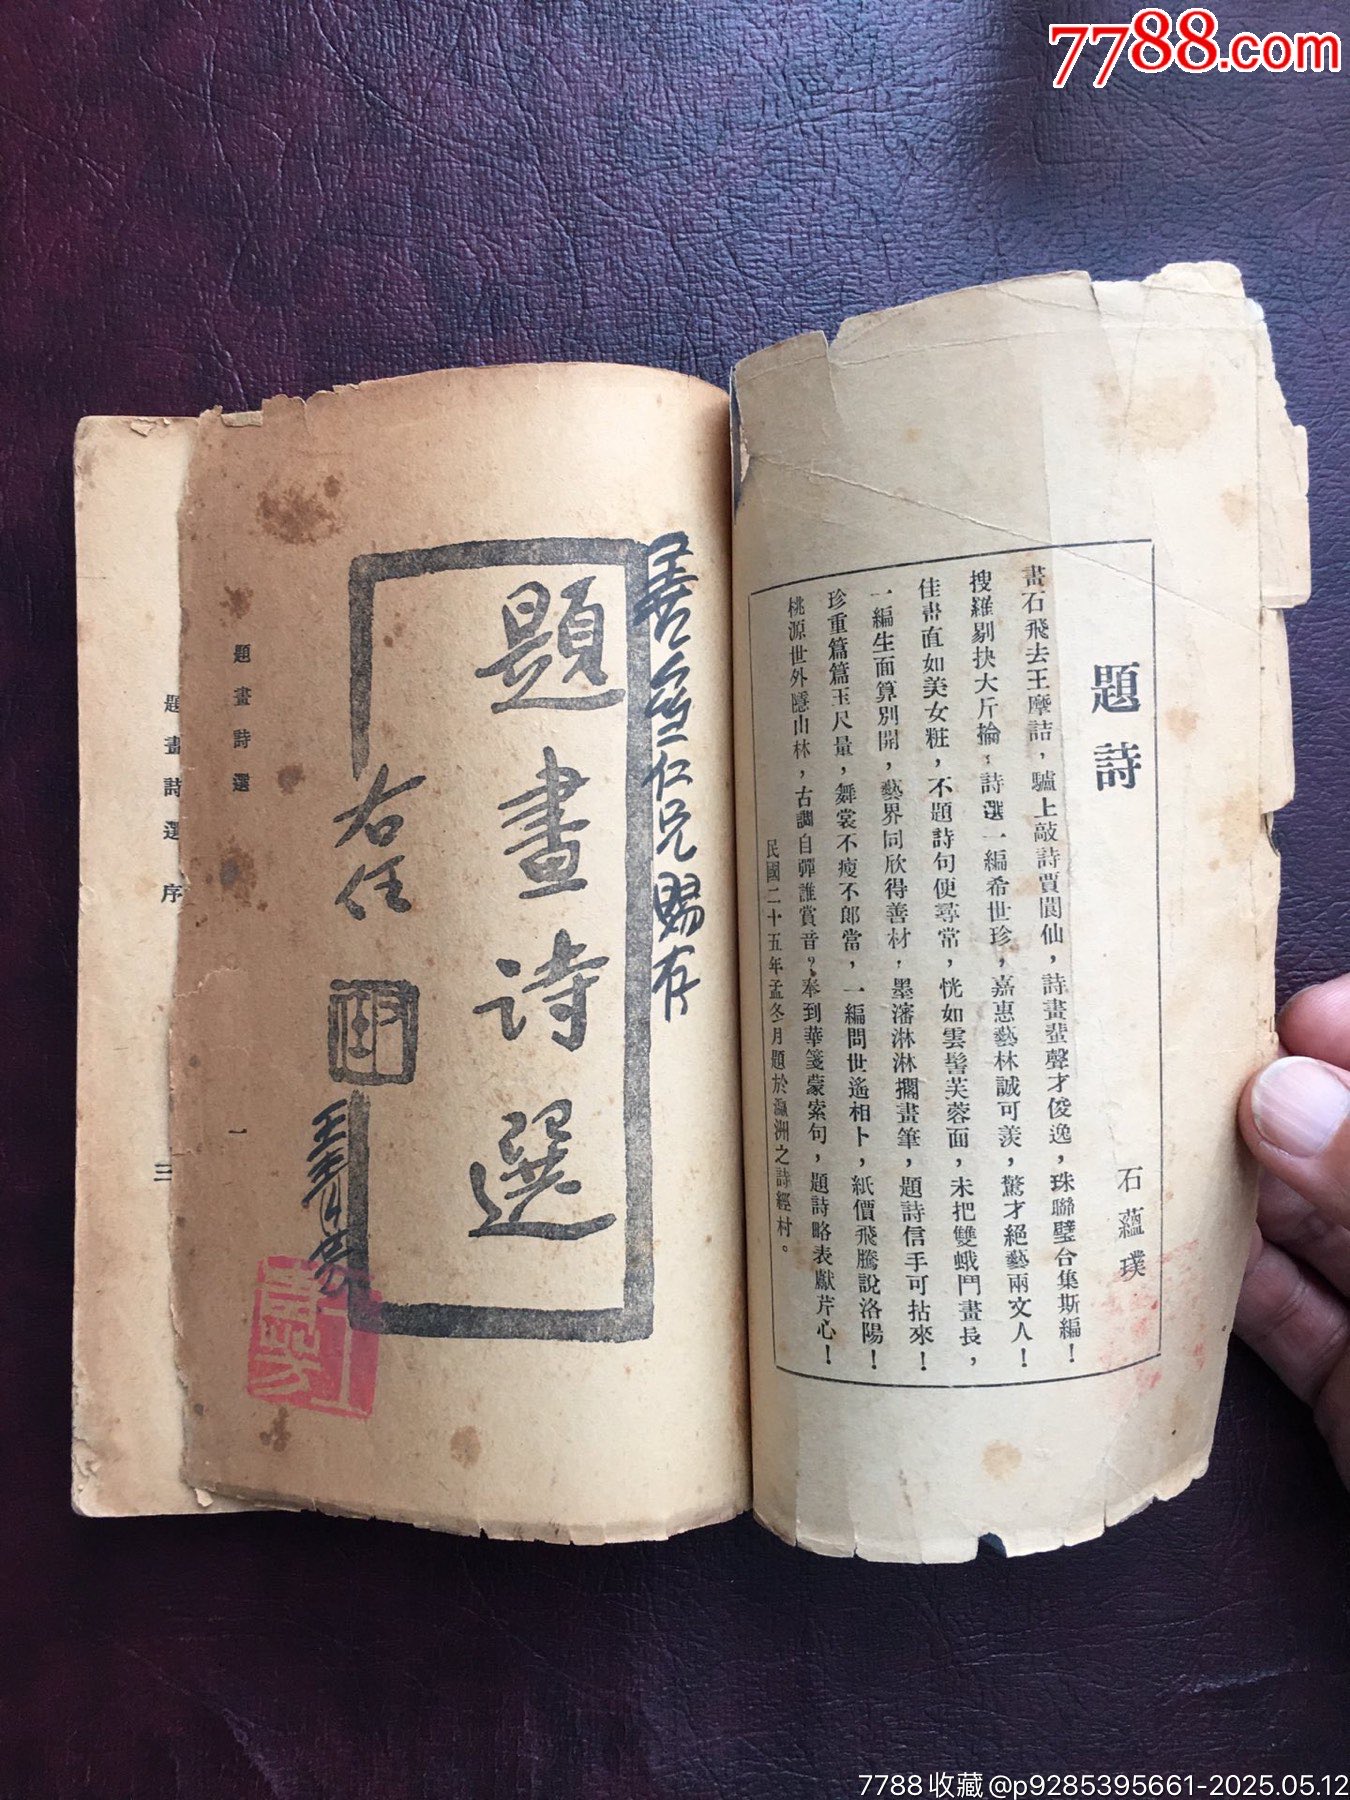 7788.com
題詩
石蘊璞
畫石飛去王摩詰，驢上敲詩賈閬仙，詩畫蜚聲才俊逸，珠聯璧合集斯編！
搜羅剔抉大斤掄，詩選一編希世珍，嘉惠藝林誠可羨，驚才絕藝兩文人！
佳畫直如美女粧，不題詩句便尋常，恍如雲髻芙蓉面，未把雙蛾鬥畫長，
一編生面算別開，藝界同欣得善材，墨瀋淋淋擱畫筆，題詩信手可拈來！
珍重篇篇玉尺量，舞裳不瘦不郎當，一編問世遙相卜，紙價飛騰說洛陽！
桃源世外隱山林，古調自彈誰賞音？奉到華箋蒙索句，題詩略表獻芹心！
民國二十五年孟冬月題於瀛洲之詩經村。
仁兄賜存
題畫詩選
右任
題畫詩選
一
題畫詩選 序
三
7788收藏@p9285395661-2025.05.12